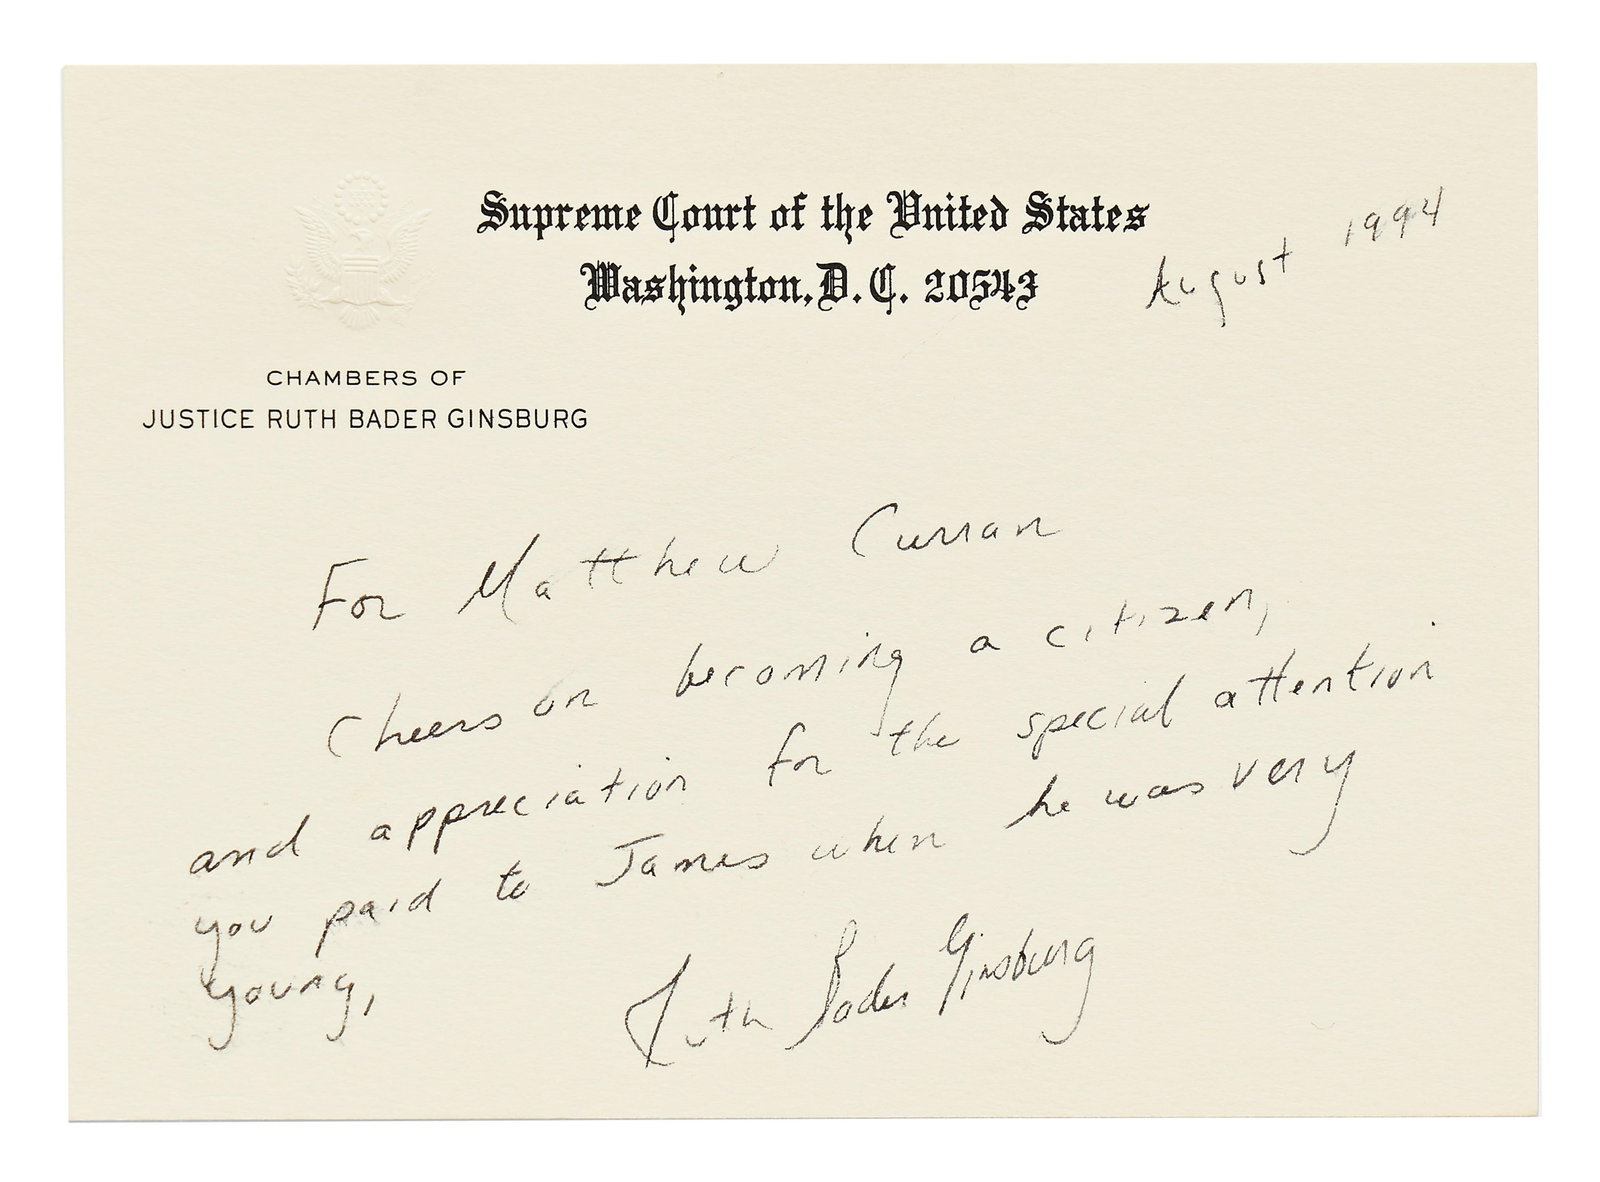 Supreme Court of the United States
Washington, D. C. 20543
August 1994
CHAMBERS OF
JUSTICE RUTH BADER GINSBURG
For Matthew Curran
Cheers on becoming a citizen,
and appreciation for the special attention
you paid to James when he was very
young,
Ruth Bader Ginsburg